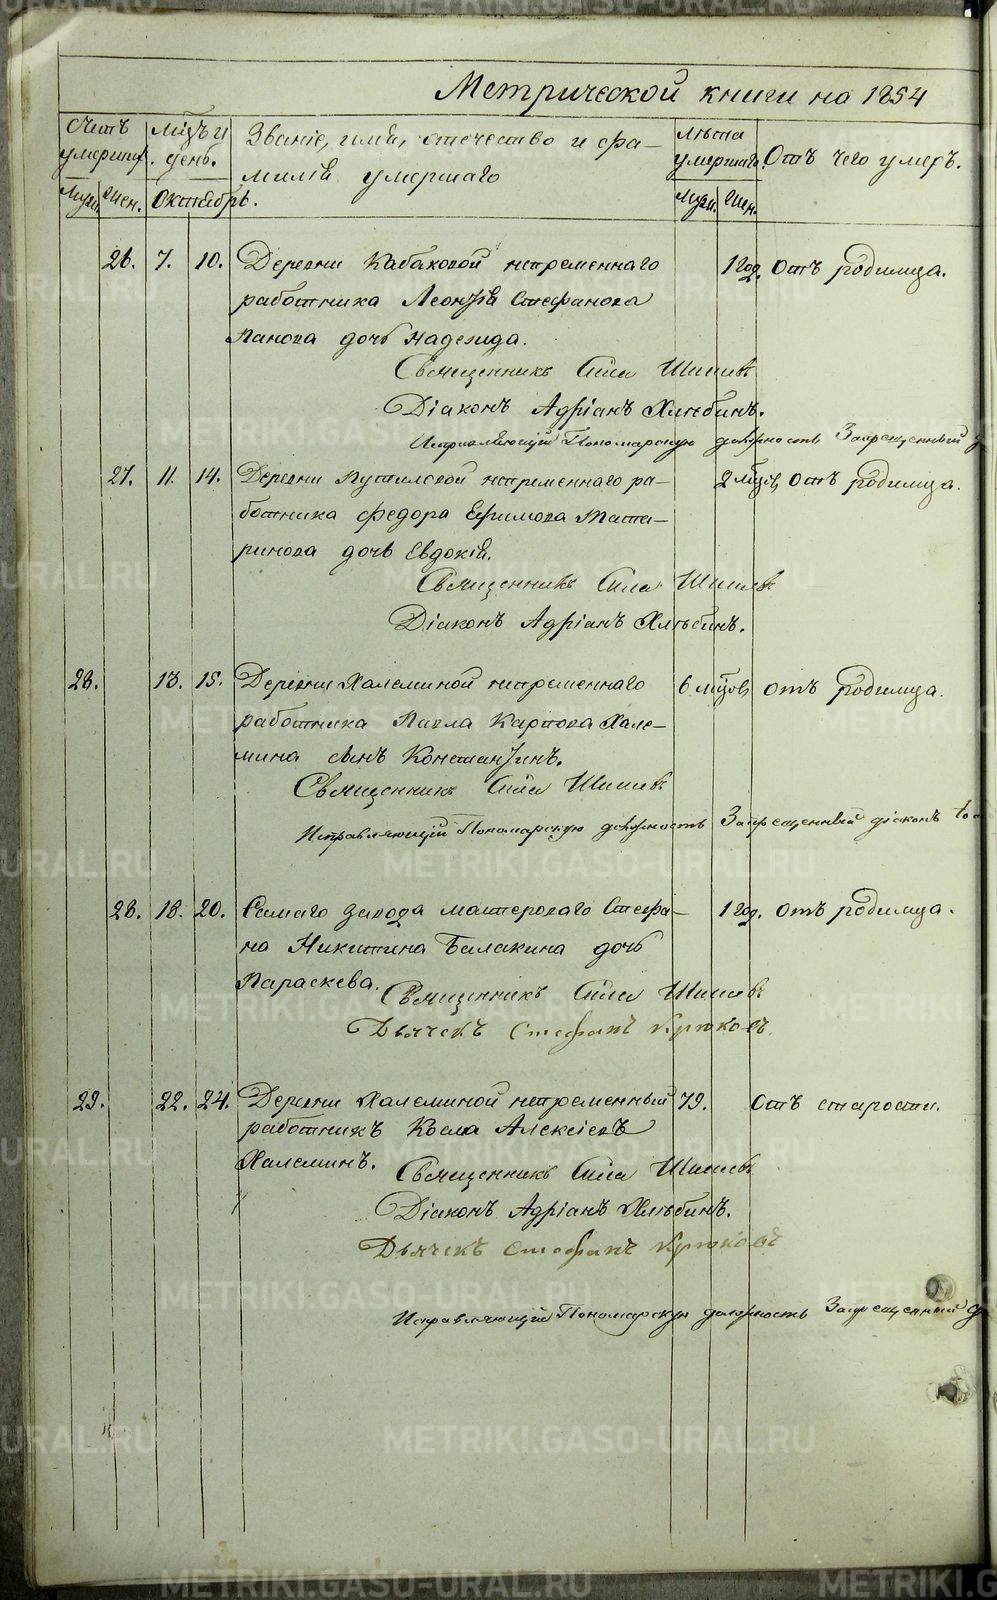 Метрической книги на 1854
Счетъ умершихъ. Мѣсяцъ и день. Званіе, имя, отечество и фа-
милія умершаго
Лѣта умершаго. Отъ чего умеръ.
Муж. Жен. Октябрь. Муж. Жен.
26. 7. 10. Деревни Кабаковой непременнаго 1 год. Отъ родимца.
работника Леонтія Стефанова
Панова дочь Надежда.
Священникъ Сила Шишевъ
Діаконъ Адріанъ Хлѣбинъ.
Исправляющій Пономарскую должность Запрещенный
27. 11. 14. Деревни Путиловой непременнаго ра- 2 мѣсяцовъ Отъ родимца.
ботника Федора Ефимова Тата-
ринова дочь Евдокія.
Священникъ Сила Шишевъ
Діаконъ Адріанъ Хлѣбинъ.
28. 13. 15. Деревни Халеминой непременнаго 6 мѣсяцовъ отъ родимца.
работника Павла Карпова Хале-
мина сынъ Константинъ.
Священникъ Сила Шишевъ
Исправляющій Пономарскую должность Запрещенный діаконъ
28. 18. 20. Самаго завода мастероваго Стефа- 1 год. отъ родимца.
на Никитина Балакина дочь
Параскева.
Священникъ Сила Шишевъ
Дьячекъ Стефанъ Крюковъ
29. 22. 24. Деревни Халеминой непременный 79. Отъ старости.
работникъ Косма Алексіевъ
Халеминъ.
Священникъ Сила Шишевъ
Діаконъ Адріанъ Хлѣбинъ.
Дьячекъ Стефанъ Крюковъ
Исправляющій Пономарскую должность Запрещенный
METRIKI.GASO-URAL.RU